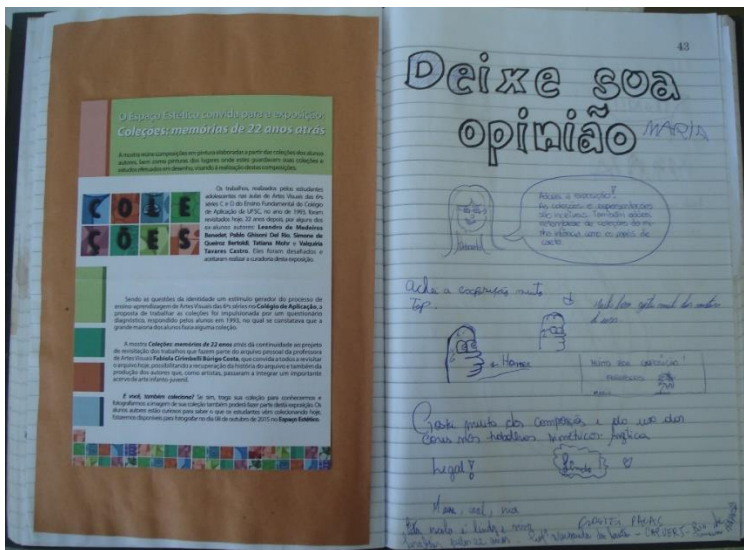 O Espaço Estético convida para a exposição:
Coleções: memórias de 22 anos atrás
A mostra reúne composições em pintura elaboradas a partir das coleções dos alunos
autores, bem como pinturas dos lugares onde estes guardavam suas coleções e
estudos efetuados em desenho, visando à realização destas composições.
COLE
ÇÕES
Os trabalhos, realizados pelos estudantes
adolescentes nas aulas de Artes Visuais das 6ªs
séries C e D do Ensino Fundamental do Colégio
de Aplicação da UFSC, no ano de 1993, foram
revisitados hoje, 22 anos depois, por alguns dos
ex-alunos autores: Leandro de Medeiros
Benedet, Pablo Ghisoni Del Rio, Simone de
Queiroz Bertoldi, Tatiana Mohr e Valquíria
Tavares Castro. Eles foram desafiados e
aceitaram realizar a curadoria desta exposição.
Sendo as questões da identidade um estímulo gerador do processo de
ensino-aprendizagem de Artes Visuais das 6ªs séries no Colégio de Aplicação, a
proposta de trabalhar as coleções foi impulsionada por um questionário
diagnóstico, respondido pelos alunos em 1993, no qual se constatava que a
grande maioria dos alunos fazia alguma coleção.
A mostra Coleções: memórias de 22 anos atrás dá continuidade ao projeto
de revisitação dos trabalhos que fazem parte do arquivo pessoal da professora
de Artes Visuais Fabíola Cirimbelli Búrigo Costa, que convida a todos a revisitar
o arquivo hoje, possibilitando a recuperação da história do arquivo e também da
produção dos autores que, como artistas, passaram a integrar um importante
acervo de arte infanto-juvenil.
E você, também coleciona? Se sim, traga sua coleção para conhecermos e
fotografarmos a imagem de sua coleção também poderá fazer parte desta exposição. Os
alunos autores estão curiosos para saber o que os estudantes vêm colecionando hoje.
Estaremos disponíveis para fotografar no dia 08 de outubro de 2015 no Espaço Estético.
43
Deixe sua
opinião
MARIA
Adorei a exposição!
As coleções e representações
são incríveis. Também adorei
relembrar de coleções da mi-
nha infância como os papéis de
carta
Achei a muito
Top.
Muito bom
Homer
Gostei muito das composições e do uso das
cores nos trabalhos
Legal!
Lindo
22 anos